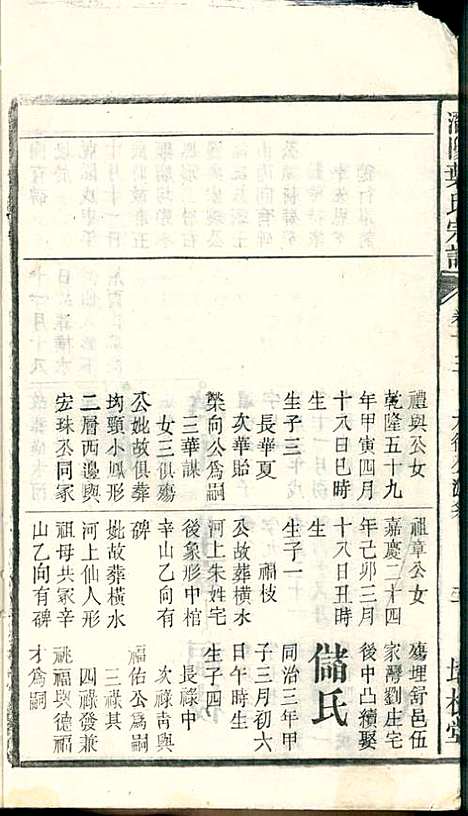 葉氏宗譜
卷十三
禮與公女
乾隆五十九
年甲寅四月
十八日巳時
生
生子三
長華夏
次華貽
榮向公爲嗣
三華謀
女三俱殤
公妣故俱葬
均頸小鳳形
二層西邊與
宏珠丞同冢
祖章公女
嘉慶二十四
年己卯三月
十八日丑時
生
生子一
福枝
公故葬橫水
河上朱姓宅
後象形中棺
辛山乙向有
碑
妣故葬橫水
河上仙人形
祖母共冢辛
山乙向有碑
殤埋舒邑伍
家灣劉庄宅
後中凸續娶
儲氏
同治三年甲
子三月初六
日午時生
生子四
長祿中
次祿青與
福佑公爲嗣
三祿其
四祿發兼
祧福與德福
才爲嗣